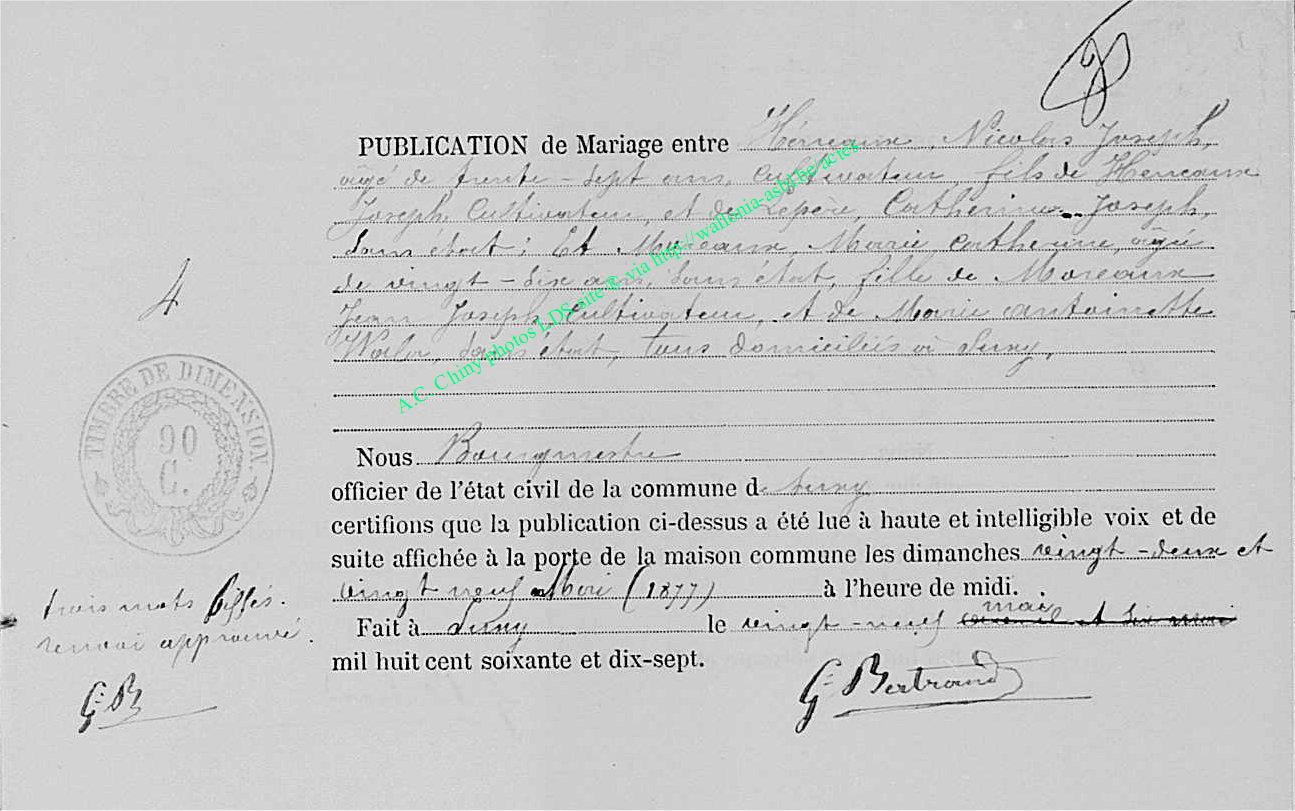 8
PUBLICATION de Mariage entre Héreaux, Nicolas Joseph,
agé de trente-sept ans, cultivateur, fils de Héreaux
Joseph, Cultivateur, et de Lepère, Catherine Joseph,
sans état; Et Moreaux Marie Catherine, agée
de vingt-six ans, sans état, fille de Moreaux
Jean Joseph, cultivateur, et de Marie antoinette
sans état, tous domiciliés à Suny,
4
TIMBRE DE DIMENSION.
90
C.
Nous Bourgmestre
officier de l'état civil de la commune de Suny
certifions que la publication ci-dessus a été lue à haute et intelligible voix et de
suite affichée à la porte de la maison commune les dimanches vingt-deux et
vingt neuf (1877) à l'heure de midi.
Fait à Suny le vingt-neuf mai
mil huit cent soixante et dix-sept.
trois mots biffés.
renvoi approuvé.
G. B
G. Bertrand
A.C. Chiny photos LDS site ® via http://wallonia-asbl.be/actes